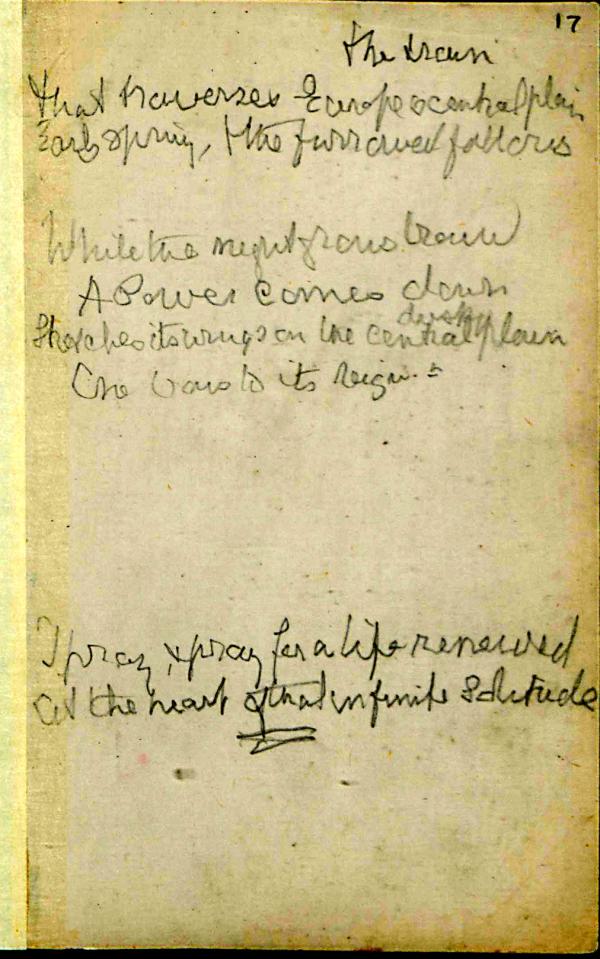 17
the train
that traverses Europe's central plain
Early spring, & the furrowed fallows
While the night grows brown
A Power comes down
dusky
Stretches its wings on the central plain
One bows to its reign.
I pray, & pray for a life renewed
At the heart of that infinite solitude